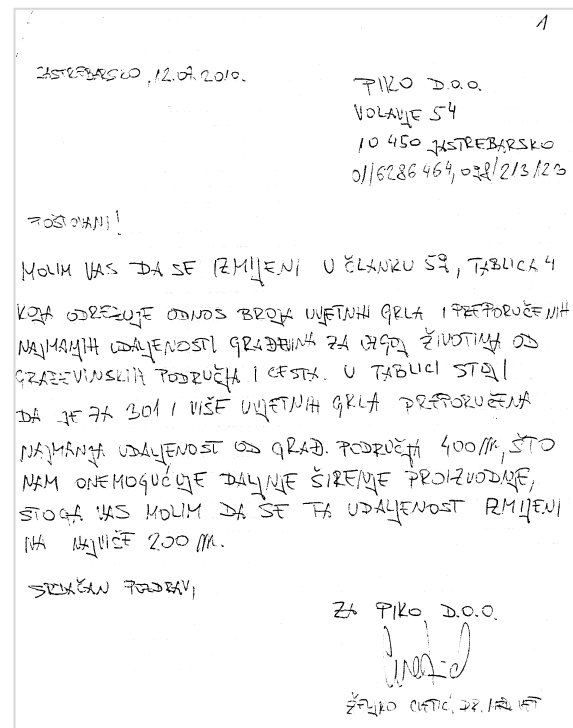 1
JASTREBARSKO, 12.07.2010.
PIKO D.O.O.
VOLAVJE 54
10 450 JASTREBARSKO
01/6286 464, 098/213/123
POŠTOVANI!
MOLIM VAS DA SE IZMIJENI U ČLANKU 59, TABLICA 4
KOJA ODREĐUJE ODNOS BROJA UVJETNIH GRLA I PREPORUČENIH
NAJMANJIH UDALJENOSTI GRAĐEVINA ZA UZGOJ ŽIVOTINJA OD
GRAĐEVINSKIH PODRUČJA I CESTA. U TABLICI STOJI
DA JE ZA 301 I VIŠE UVJETNIH GRLA PREPORUČENA
NAJMANJA UDALJENOST OD GRAĐ. PODRUČJA 400 M, ŠTO
NAM ONEMOGUĆUJE DALJNJE ŠIRENJE PROIZVODNJE,
STOGA VAS MOLIM DA SE TA UDALJENOST IZMIJENI
NA NAJVIŠE 200 M.
SRDAČAN POZDRAV,
ZA PIKO D.O.O.
ŽELJKO DR.